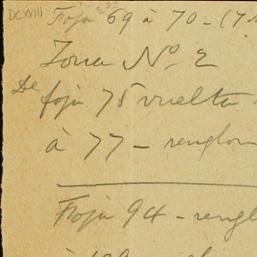 DCXVIII
Foja 69 à 70 - (7
Zona Nº 2
De foja 75 vuelta
à 77 - renglon
Foja 94 - rengl